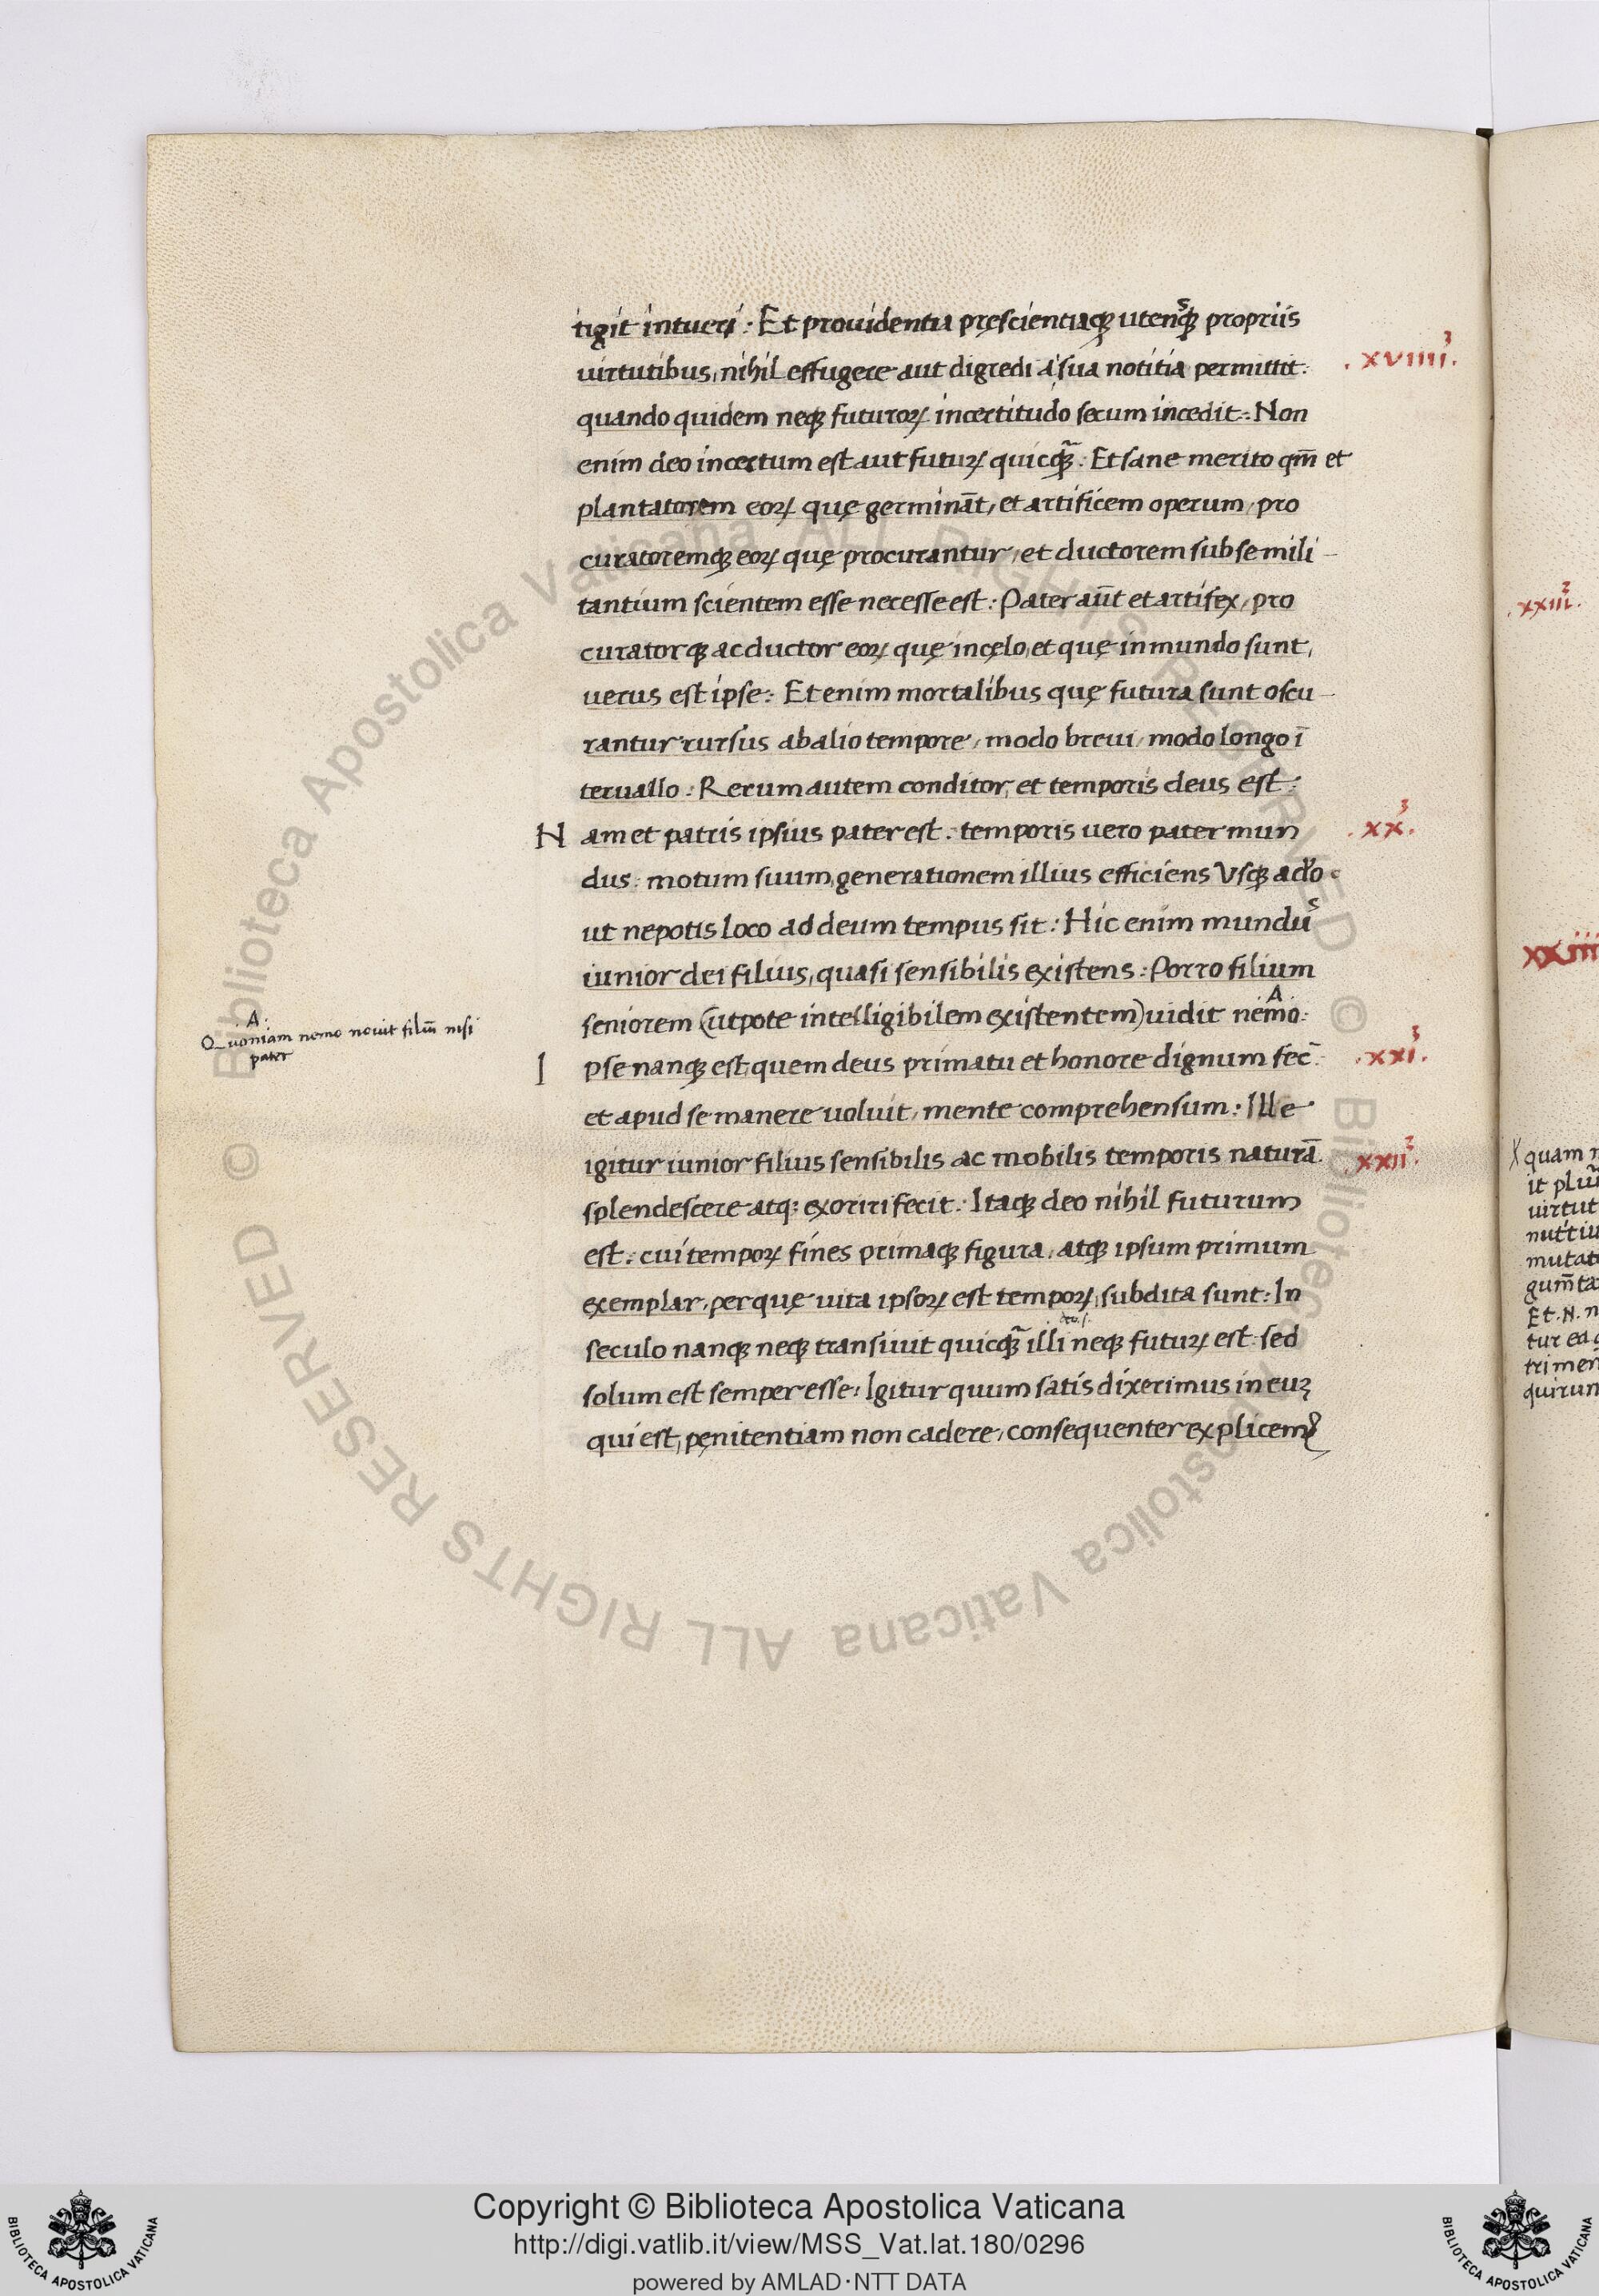 tigit intueri : Et prouidentia pręscientiaq; utensq; propriis
uirtutibus, nihil effugere aut digredi a sua notitia permittit :
.xviiii.
quando quidem neq; futuroꝝ incertitudo secum incedit : Non
enim deo incertum est aut futuꝝ quicq̃ : Et sane merito qm̄ et
plantatorem eoꝝ quę germināt, et artificem operum, pro
curatoremq; eoꝝ quę procurantur, et ductorem sub se mili -
tantium scientem esse necesse est : Pater aūt et artifex, pro
curatorq; ac ductor eoꝝ quę in cęlo, et quę in mundo sunt,
uerus est ipse : Et enim mortalibus quę futura sunt oscu -
rantur rursus ab alio tempore, modo breui, modo longo ī
teruallo : Rerum autem conditor, et temporis deus est :
Nam et patris ipsius pater est : temporis uero pater mun
.xx.
dus : motum suum, generationem illius efficiens Vsq; adeo
ut nepotis loco ad deum tempus sit : Hic enim mundus
iunior dei filius, quasi sensibilis existens : Porro filium
seniorem (utpote intelligibilem existentem) uidit nemo :
.A.
A.
Quoniam nemo nouit filiū nisi
pater
Ipse nanq; est, quem deus primatu et honore dignum fec̄ :
.xxi.
et apud se manere uoluit, mente comprehensum : Ille
igitur iunior filius sensibilis ac mobilis temporis naturā
.xxii.
splendescere atq; exoriri fecit : Itaq; deo nihil futurum
est : cui tempoꝝ fines primaq; figura, atq; ipsum primum
exemplar, per quę uita ipsoꝝ est tempoꝝ, subdita sunt : In
seculo nanq; neq; transiuit quicq̃ illi neq; futuꝝ est : sed
solum est semper esse : Igitur quum satis dixerimus in euʒ
qui est, pęnitentiam non cadere, consequenter explicemꝰ
.xxiii.
xxiiii
quam
it plu
uirtut
mutat
Et . N . n
tur ea
quirun
© Biblioteca Apostolica Vaticana ALL RIGHTS RESERVED © Biblioteca Apostolica Vaticana ALL RIGHTS RESERVED
Copyright © Biblioteca Apostolica Vaticana
http://digi.vatlib.it/view/MSS_Vat.lat.180/0296
powered by AMLAD · NTT DATA
BIBLIOTECA APOSTOLICA VATICANA
BIBLIOTECA APOSTOLICA VATICANA